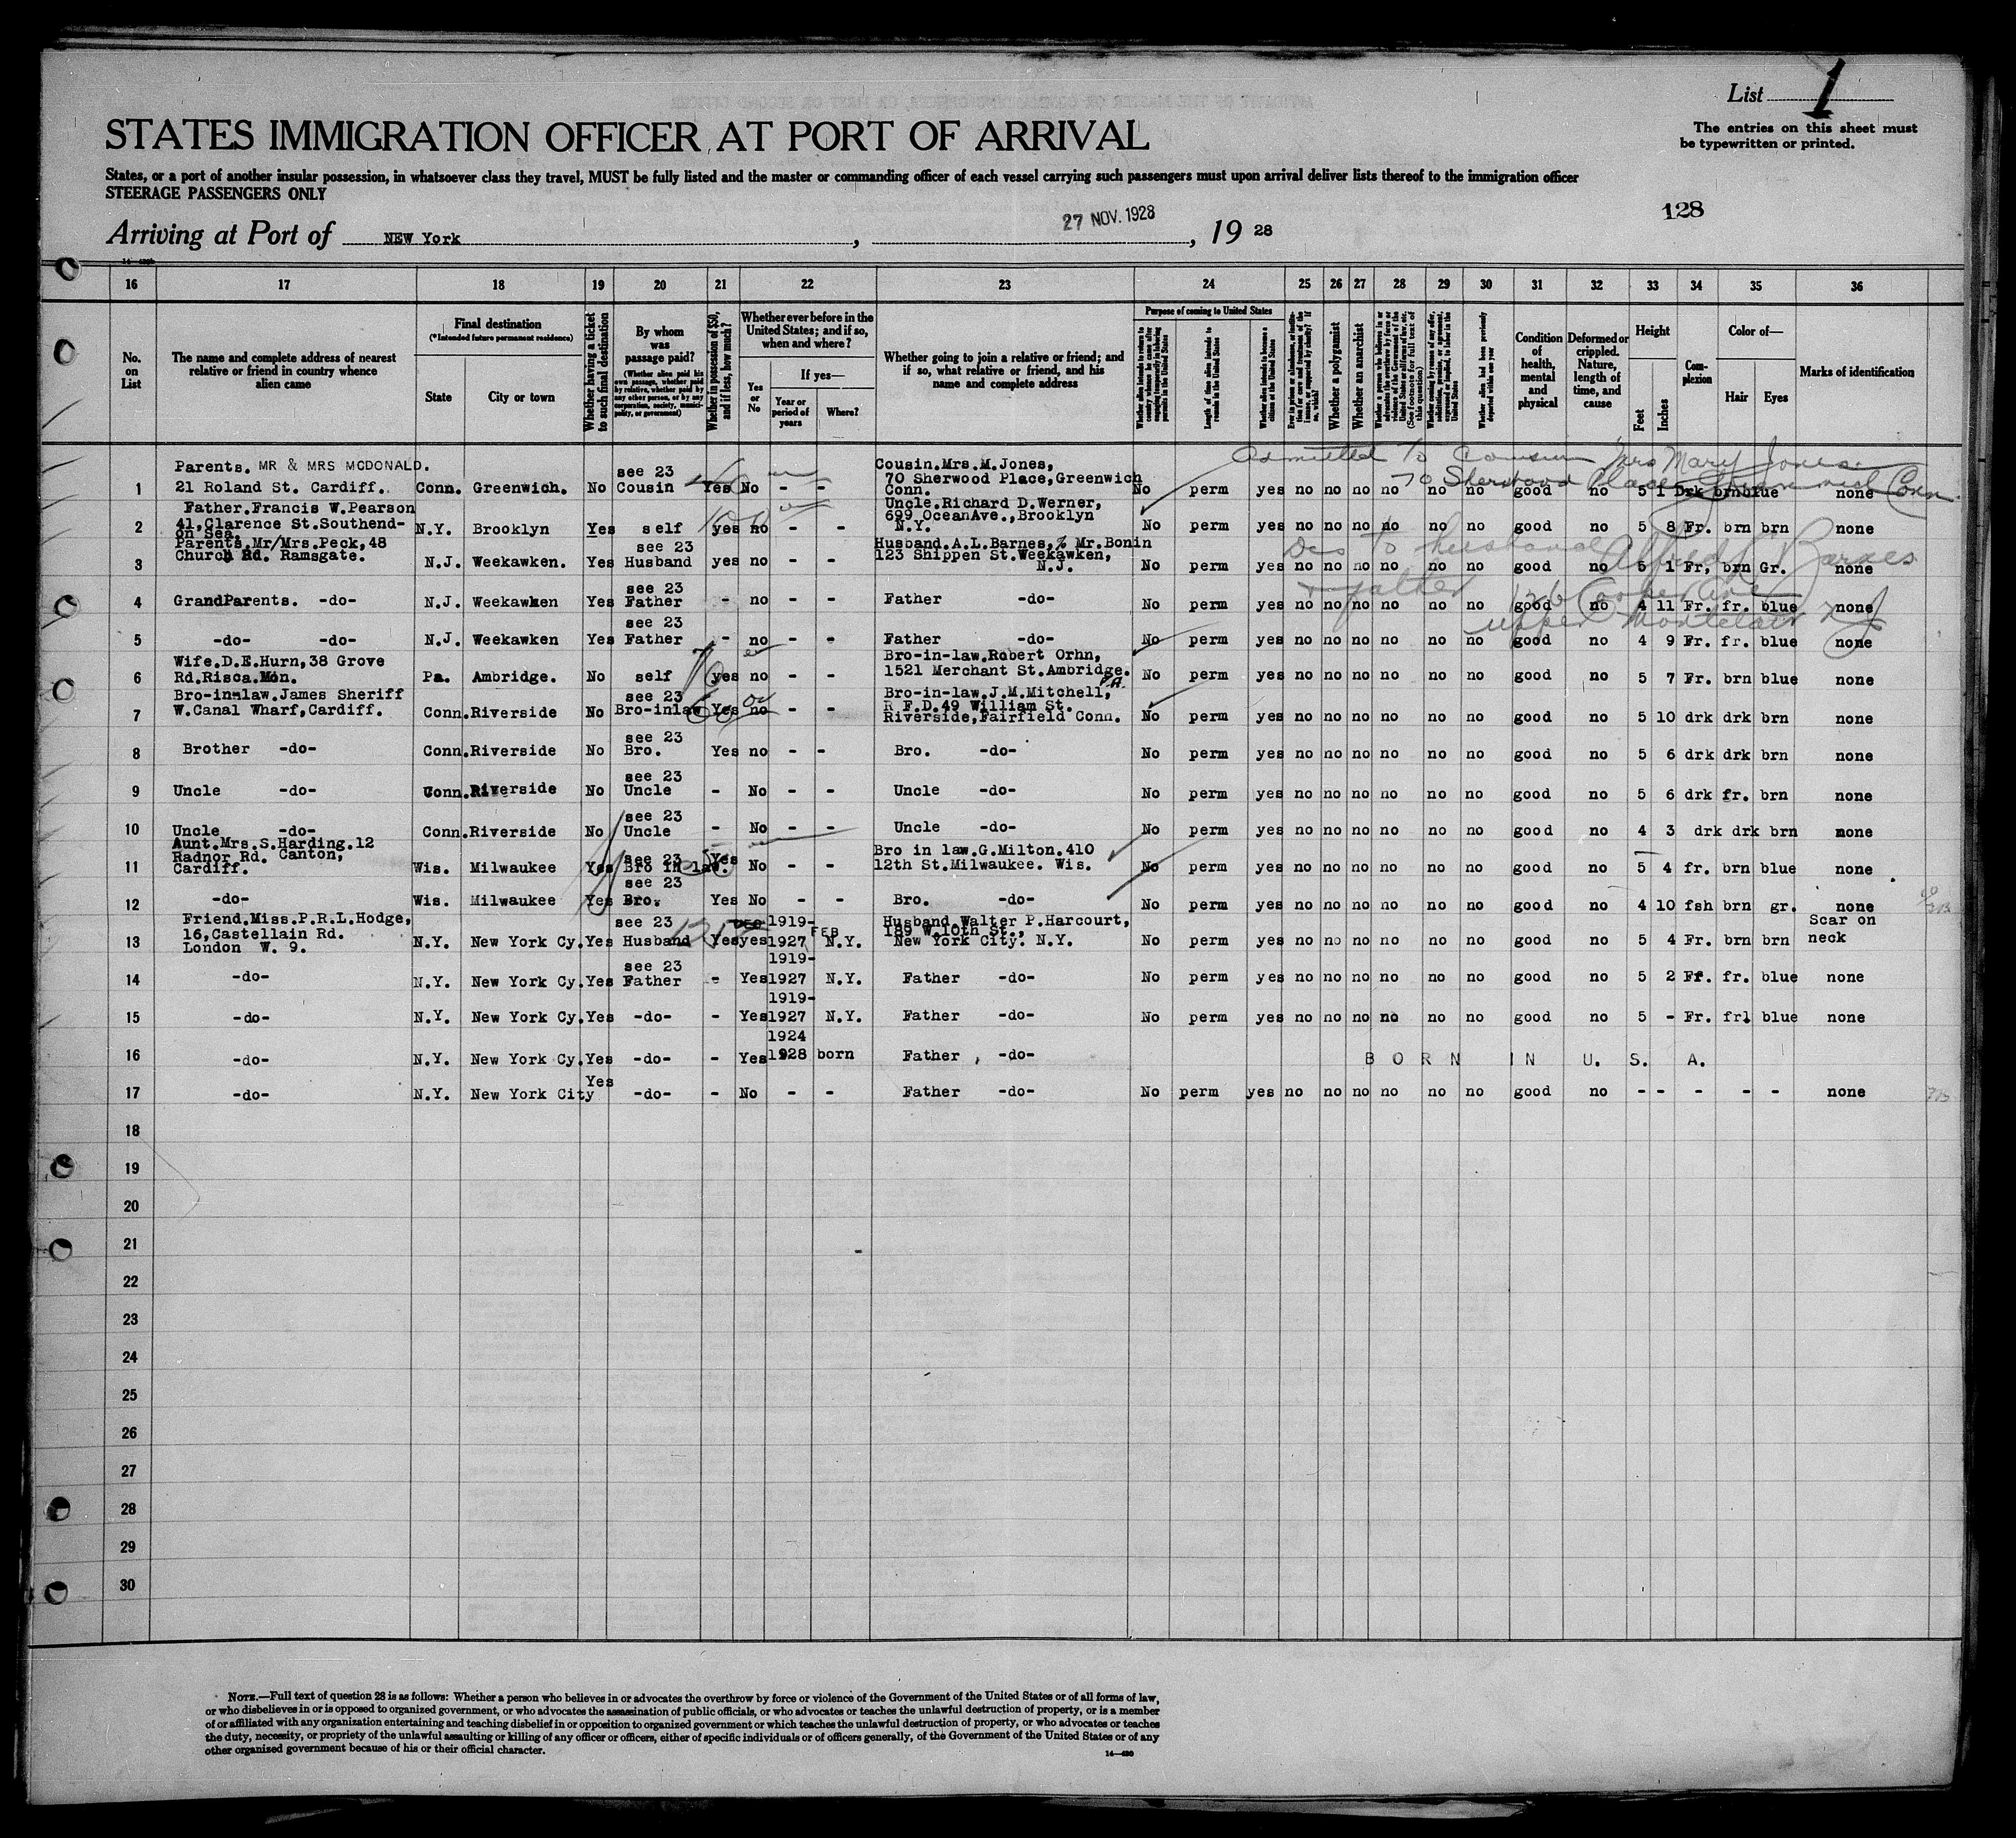 List 1
The entries on this sheet must
be typewritten or printed.
STATES IMMIGRATION OFFICER AT PORT OF ARRIVAL
States, or a port of another insular possession, in whatsoever class they travel, MUST be fully listed and the master or commanding officer of each vessel carrying such passengers must upon arrival deliver lists thereof to the immigration officer
STEERAGE PASSENGERS ONLY
128
Arriving at Port of NEW York, 27 NOV. 1928, 19 28
16 17 18 19 20 21 22 23 24 25 26 27 28 29 30 31 32 33 34 35 36
No. on List
The name and complete address of nearest relative or friend in country whence alien came
Final destination (*Intended future permanent residence)
State
City or town
Whether having a ticket to such final destination
By whom was passage paid?
(Whether alien paid his own passage, whether paid by relative, whether paid by any other person, or by any corporation, society, municipality, or government)
Whether in possession of $50, and if less, how much?
Whether ever before in the United States; and if so, when and where?
Yes or No
If yes—
Year or period of years
Where?
Whether going to join a relative or friend; and if so, what relative or friend, and his name and complete address
Purpose of coming to United States
Length of time alien intends to remain in the United States
Whether alien intends to become a citizen of the United States
Whether a polygamist
Whether an anarchist
Condition of health, mental and physical
Deformed or crippled. Nature, length of time, and cause
Height
Feet
Inches
Complexion
Color of—
Hair
Eyes
Marks of identification
Admitted to cousin Mrs Mary Jones
70 Sherwood Place Greenwich Conn.
1 Parents. MR & MRS MCDONALD. 21 Roland St. Cardiff. Conn. Greenwich. No see 23 Cousin Yes No - - Cousin.Mrs.M.Jones, 70 Sherwood Place,Greenwich Conn. No perm yes no no no no no no good no 5 1 Drk brn blue none
2 Father.Francis W.Pearson 41,Clarence St.Southend-on Sea. N.Y. Brooklyn Yes self yes no - - Uncle.Richard D.Werner, 699 OceanAve.,Brooklyn N.Y. No perm yes no no no no no no good no 5 8 Fr. brn brn none
Des to husband Alfred L Barnes
3 Parents,Mr/Mrs.Peck,48 Church Rd. Ramsgate. N.J. Weekawken. Yes see 23 Husband yes no - - Husband.A.L.Barnes,% Mr.Bonin 123 Shippen St.Weekawken, N.J. No perm yes no no no no no no good no 5 1 Fr, brn Gr. none
& father 126 Cooper Ave
4 GrandParents. -do- N.J. Weekawken Yes see 23 Father - no - - Father -do- No perm yes no no no no no no good no 4 11 Fr. fr. blue none
upper Montclair NJ
5 -do- -do- N.J. Weekawken Yes see 23 Father - no - - Father -do- No perm yes no no no no no no good no 4 9 Fr. fr. blue none
6 Wife.D.E.Hurn,38 Grove Rd.Risca.Mon. Pa. Ambridge. No self yes no - - Bro-in-law.Robert Orhn, 1521 Merchant St.Ambridge. PA. No perm yes no no no no no no good no 5 7 Fr. brn blue none
7 Bro-in-law.James Sheriff W.Canal Wharf,Cardiff. Conn. Riverside No see 23 Bro-inlaw Yes no - - Bro-in-law.J.M.Mitchell, R F.D.49 William St. Riverside,Fairfield Conn. No perm yes no no no no no no good no 5 10 drk drk brn none
8 Brother -do- Conn. Riverside No see 23 Bro. Yes no - - Bro. -do- No perm yes no no no no no no good no 5 6 drk drk brn none
9 Uncle -do- Conn. Riverside No see 23 Uncle - No - - Uncle -do- No perm yes no no no no no no good no 5 6 drk fr. brn none
10 Uncle -do- Conn. Riverside No see 23 Uncle - No - - Uncle -do- No perm yes no no no no no no good no 4 3 drk drk brn none
11 Aunt.Mrs.S.Harding.12 Radnor Rd. Canton, Cardiff. Wis. Milwaukee Yes see 23 Bro in law. Yes No - - Bro in law.G.Milton.410 12th St.Milwaukee. Wis. No perm yes no no no no no no good no 5 4 fr. brn blue none
12 -do- Wis. Milwaukee Yes see 23 Bro. Yes No - - Bro. -do- No perm yes no no no no no no good no 4 10 fsh brn gr. none
13 Friend.Miss.P.R.L.Hodge, 16,Castellain Rd. London W. 9. N.Y. New York Cy. Yes see 23 Husband Yes yes DEC 1919- 1927 FEB N.Y. Husband.Walter P.Harcourt, 189 W.10th St., New York City. N.Y. No perm yes no no no no no no good no 5 4 Fr. brn brn Scar on neck
14 -do- N.Y. New York Cy. Yes see 23 Father - Yes 1919- 1927 N.Y. Father -do- No perm yes no no no no no no good no 5 2 Fr. fr. blue none
15 -do- N.Y. New York Cy. Yes -do- - Yes 1919- 1927 N.Y. Father -do- No perm yes no no no no no no good no 5 - Fr. frl blue none
16 -do- N.Y. New York Cy. Yes -do- - Yes 1924 1928 born Father -do- BORN IN U. S. A.
17 -do- N.Y. New York City Yes -do- - No - - Father -do- No perm yes no no no no no no good no - - - - - none
18
19
20
21
22
23
24
25
26
27
28
29
30
NOTE.—Full text of question 28 is as follows: Whether a person who believes in or advocates the overthrow by force or violence of the Government of the United States or of all forms of law,
or who disbelieves in or is opposed to organized government, or who advocates the assassination of public officials, or who advocates or teaches the unlawful destruction of property, or is a member
of or affiliated with any organization entertaining and teaching disbelief in or opposition to organized government or which teaches the unlawful destruction of property, or who advocates or teaches
the duty, necessity, or propriety of the unlawful assaulting or killing of any officer or officers, either of specific individuals or of officers generally, of the Government of the United States or of any
other organized government because of his or their official character.
14—430